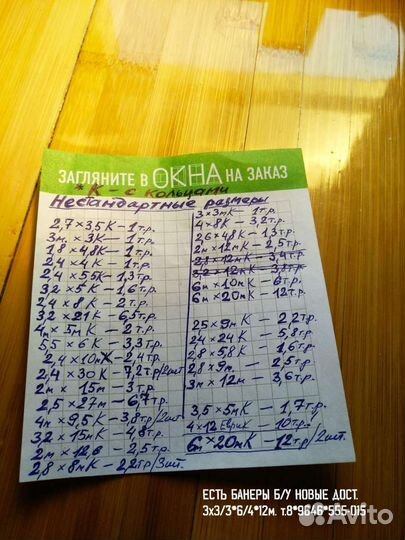 ЗАГЛЯНИТЕ В ОКНА НА ЗАКАЗ
*К - с кольцами
Нестандартные размеры
2,7 × 3,5 К — 1 т.р.
3м × 3 К — 1 т.р.
1,8 × 4,8 К — 1 т.р.
2,4 × 4,1 К — 1 т.р.
2,4 × 5,5 К — 1,3 т.р.
3,2 × 5 К — 1,6 т.р.
2,4 × 8 К — 2 т.р.
3,2 × 21 К — 6,5 т.р.
4м × 5м К — 2 т.р.
5,5 × 6 К — 3,3 т.р.
2,4 × 10м К — 2,4 т.р.
2,4 × 30 К — 7,2 т.р/2шт
2м × 15м — 3 т.р.
2,5 × 27м — 6,7 т.р.
4м × 9,5 К — 3,8 т.р/2шт
3,2 × 15м К — 4,8 т.р.
2м × 12,6 — 2,5 т.р.
2,8 × 8м К — 2,2 т.р/3шт.
3 × 3м К — 1 т.р.
4 × 8 К — 3,2 т.р.
2,6 × 4,8 К — 1,3 т.р.
2м × 12м К — 2,5 т.р.
2,8 × 12м К — 3,4 т.р.
3,2 × 12м К — 3,8 т.р.
6м × 10м К — 6 т.р.
6м × 20м К — 12 т.р.
2,5 × 9м К — 2,2 т.р.
24 × 24 К — 5,8 т.р.
2,8 × 5,8 К — 1,6 т.р.
2,8 × 9м — 2,5 т.р.
3м × 12м — 3,6 т.р.
3,5 × 5м К — 1,7 т.р.
4 × 12 Еврик — 10 т.р.
6м × 20м К — 12 т.р/2шт.
ЕСТЬ БАНЕРЫ Б/У НОВЫЕ ДОСТ.
3х3/3*6/4*12м. т.8*9646*555-015-
Avito